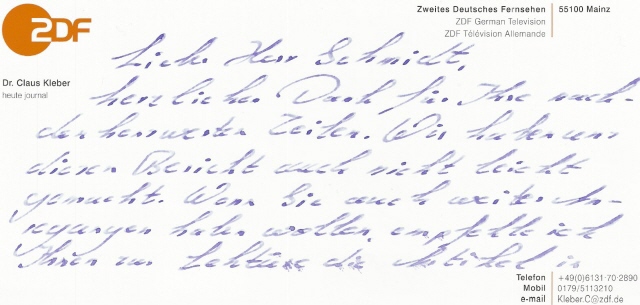 ZDF
Zweites Deutsches Fernsehen
ZDF German Television
ZDF Télévision Allemande
55100 Mainz
Dr. Claus Kleber
heute journal
Lieber Herr Schmidt,
herzlichen Dank für Ihre nach-
denkenswerten Zeilen. Wir haben uns
diesen Bericht auch nicht leicht
gemacht. Wenn Sie auch weiter An-
regungen haben wollen, empfehle ich
Ihnen zur Lektüre die Artikel in
Telefon +49(0)6131·70·2890
Mobil 0179/5113210
e-mail Kleber.C@zdf.de